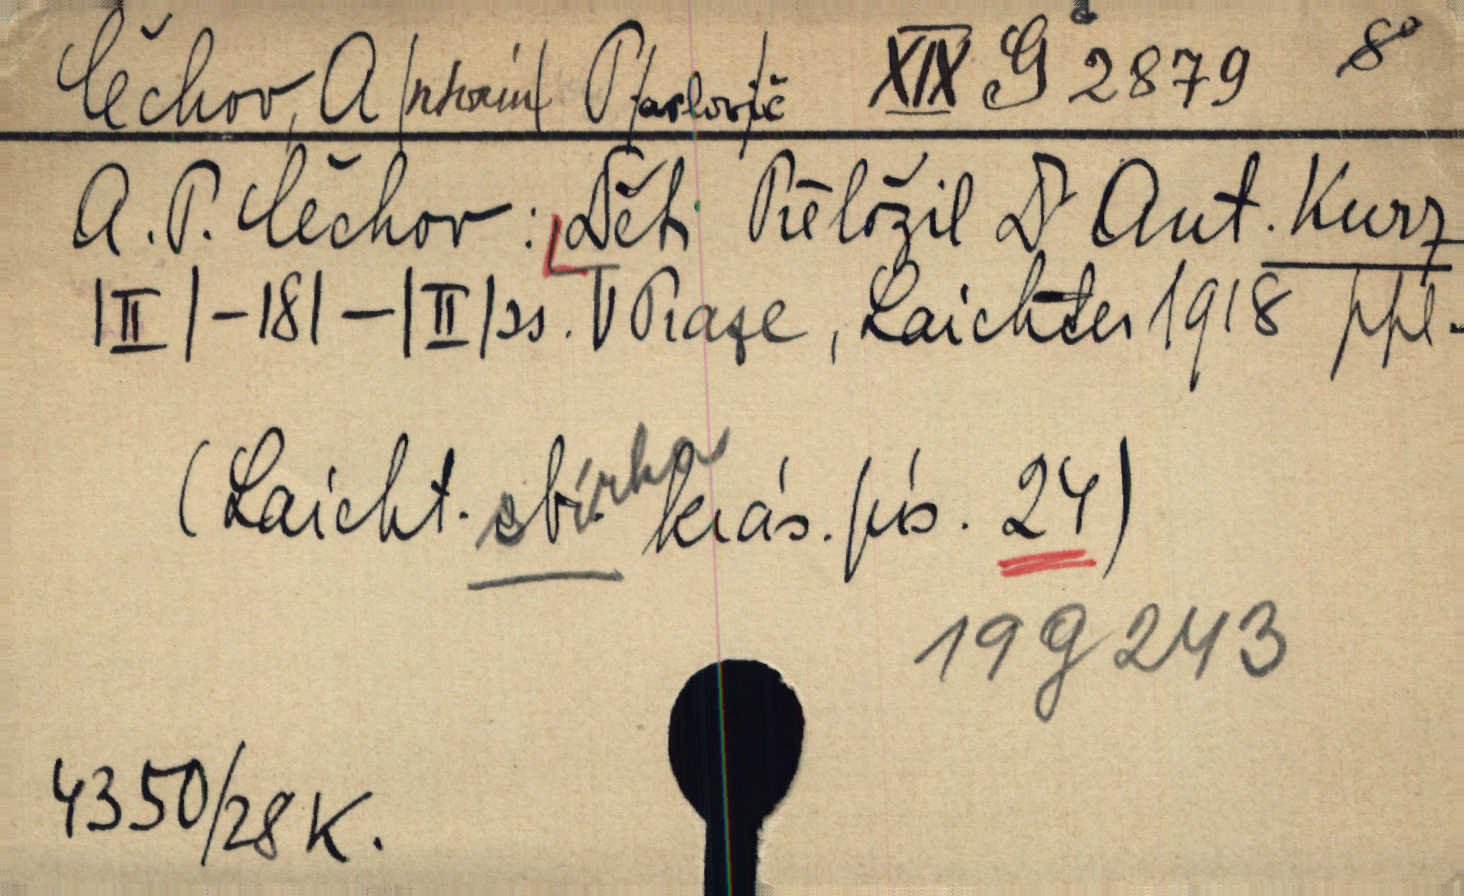 Čechov, A/ntonín/ P/avlovič/ XIX G 2879 8°
A. P. Čechov: Děti Přeložil Dr Ant. Kurz
|II|-181-|II| ss. V Praze, Laichter 1918 ppl.
(Laicht. sbírka krás. pís. 24)
19 g 243
4350/28 K.